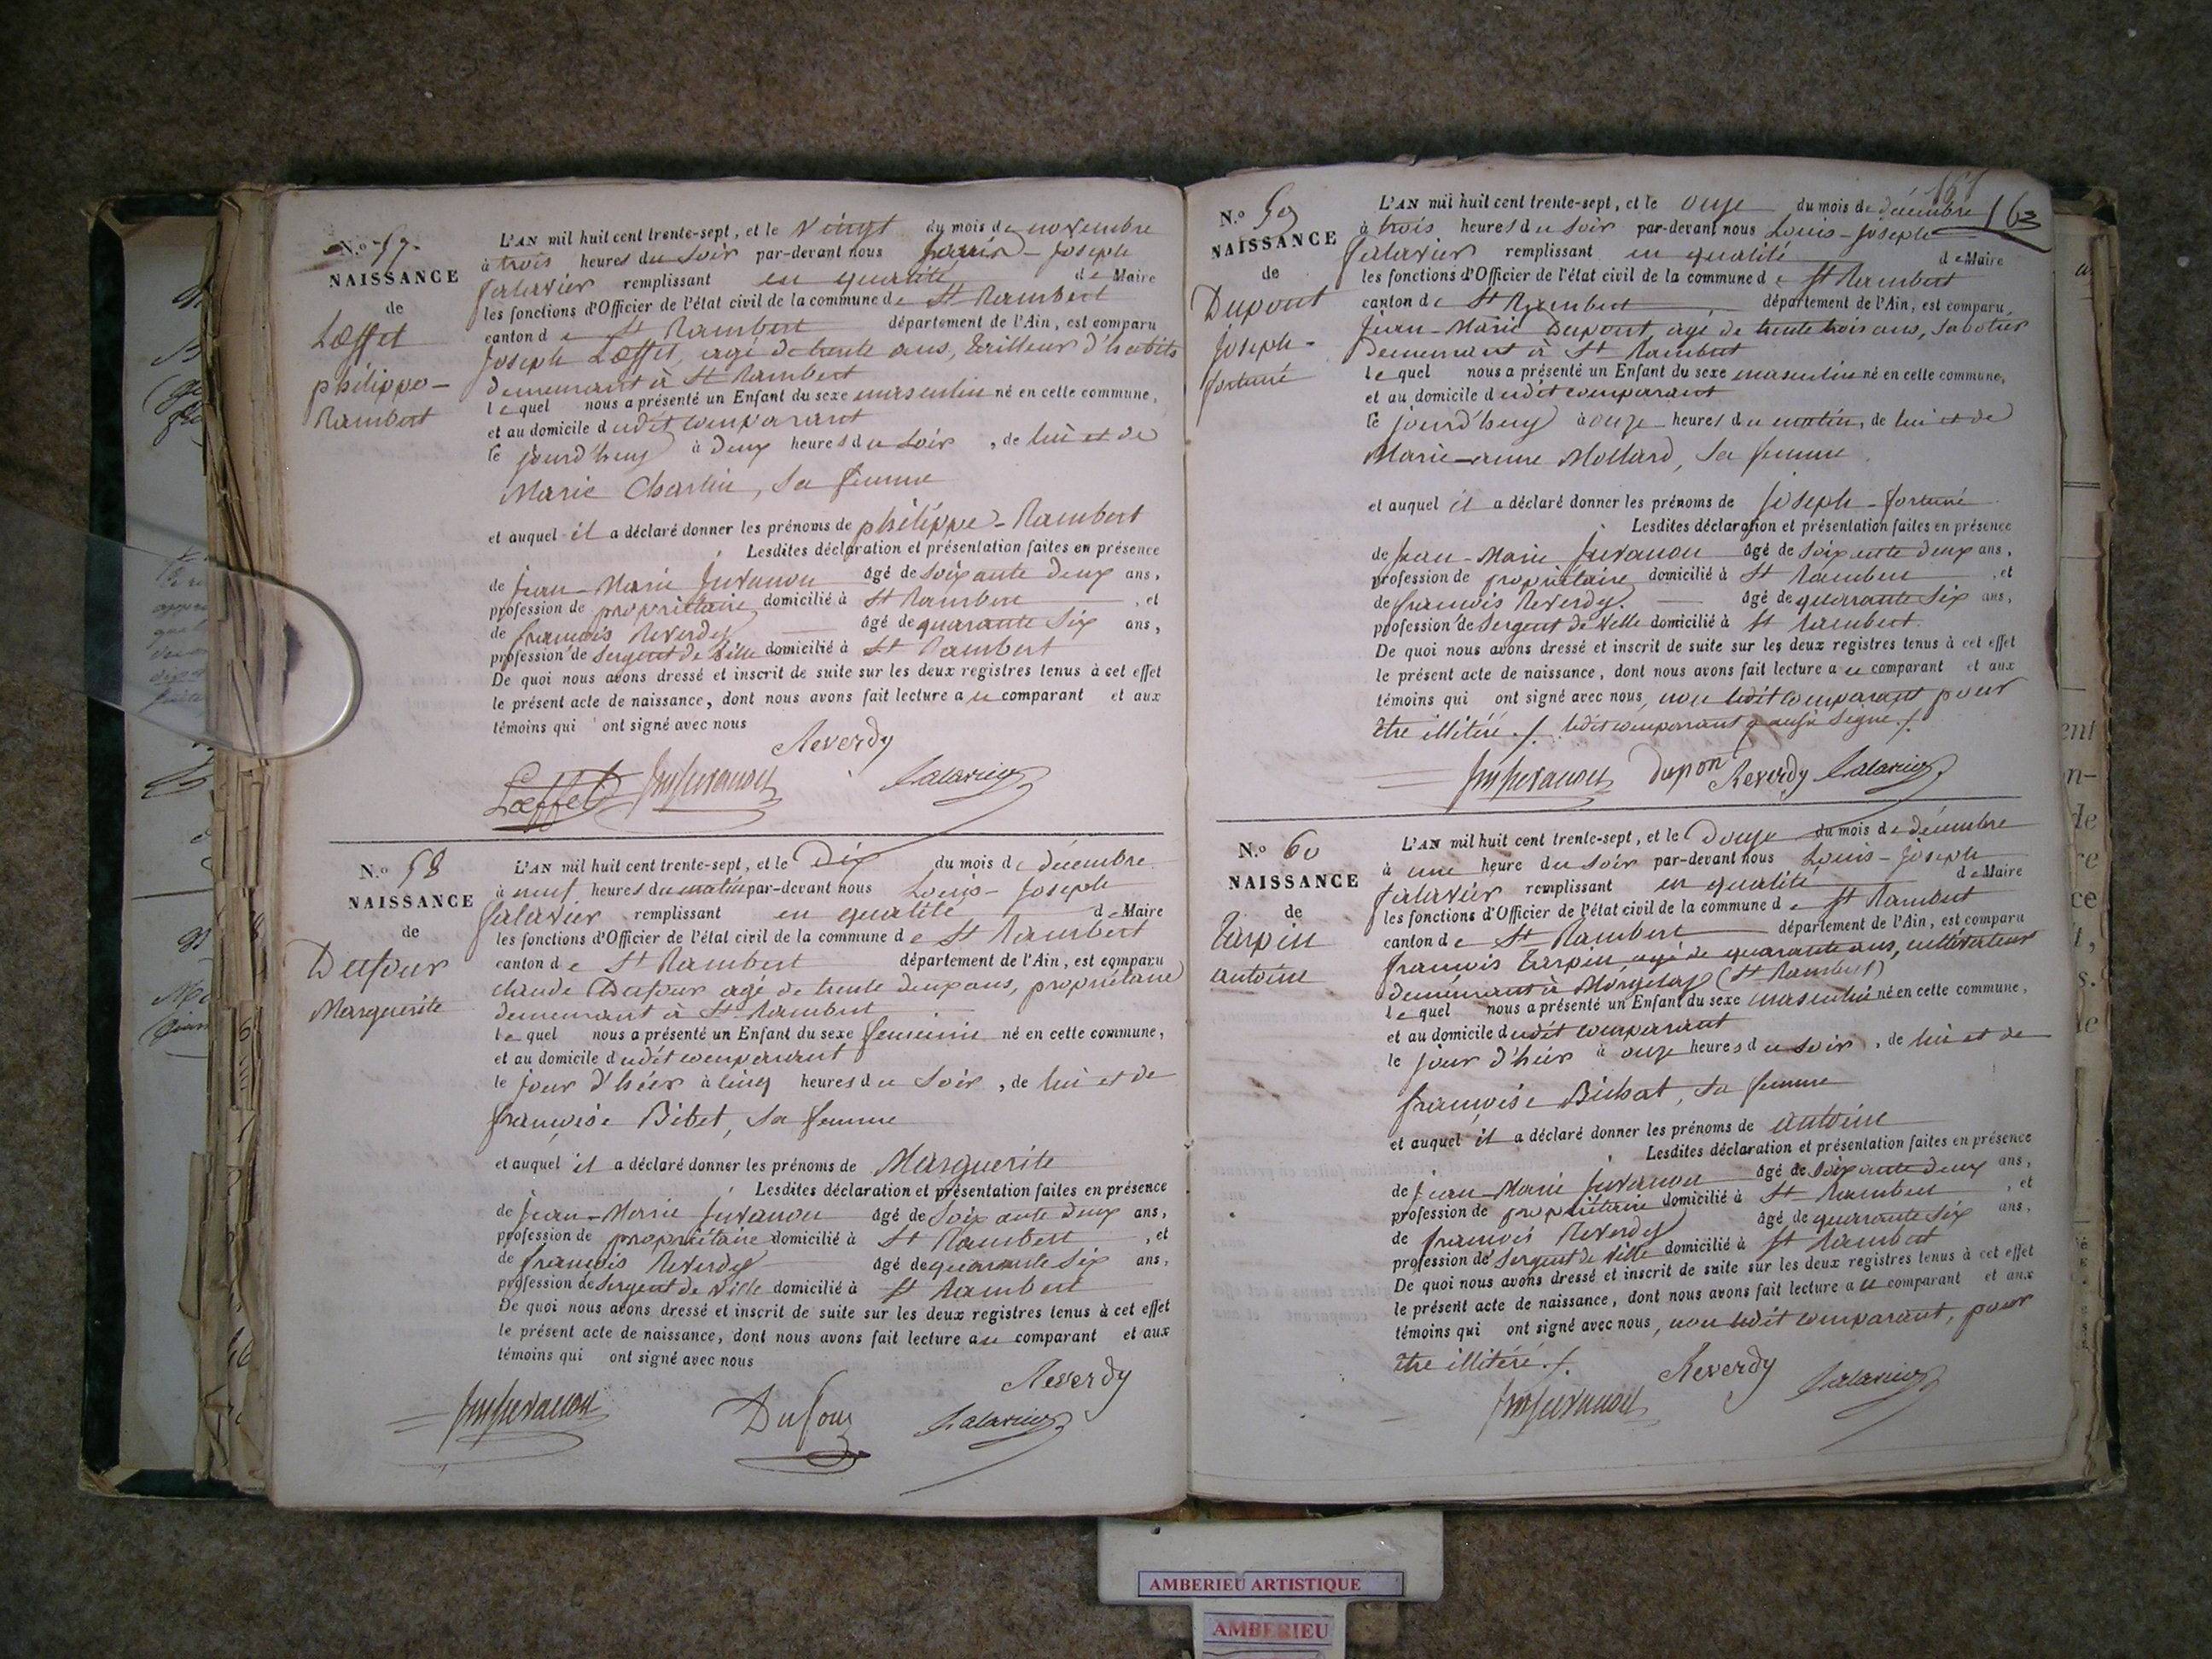 N.o 57
NAISSANCE
de
Lœffet
philippe-
Rambert
L'AN mil huit cent trente-sept, et le Vingt du mois de novembre
à trois heures du soir par-devant nous Louis-Joseph
Falavier remplissant en qualité de Maire
les fonctions d'Officier de l'état civil de la commune de St Rambert
canton de St Rambert département de l'Ain, est comparu
Joseph Lœffet, agé de trente ans, tailleur d'habits
demeurant à St Rambert
lequel nous a présenté un Enfant du sexe masculin né en cette commune,
et au domicile dudit comparant
le jourd'huy à deux heures du soir, de lui et de
Marie Charlin, sa femme
et auquel il a déclaré donner les prénoms de philippe-Rambert
Lesdites déclaration et présentation faites en présence
de Jean-Marie Juvanon âgé de soixante deux ans,
profession de propriétaire domicilié à St Rambert, et
de francois Reverdy âgé de quarante six ans,
profession de Sergent de Ville domicilié à St Rambert
De quoi nous avons dressé et inscrit de suite sur les deux registres tenus à cet effet
le présent acte de naissance, dont nous avons fait lecture au comparant et aux
témoins qui ont signé avec nous
Reverdy
Lœffel Jm Juvanon Falavier
N.o 58
NAISSANCE
de
Dufour
Marguerite
L'AN mil huit cent trente-sept, et le Dix du mois de décembre
à neuf heures du matin par-devant nous Louis-Joseph
Falavier remplissant en qualité de Maire
les fonctions d'Officier de l'état civil de la commune de St Rambert
canton de St Rambert département de l'Ain, est comparu
claude Dufour agé de trente deux ans, propriétaire
demeurant à St Rambert
lequel nous a présenté un Enfant du sexe feminin né en cette commune,
et au domicile dudit comparant
le jour d'hier à cinq heures du soir, de lui et de
françoise Bibet, sa femme
et auquel il a déclaré donner les prénoms de Marguerite
Lesdites déclaration et présentation faites en présence
de Jean-Marie Juvanon âgé de soixante deux ans,
profession de propriétaire domicilié à St Rambert, et
de francois Reverdy âgé de quarante six ans,
profession de Sergent de Ville domicilié à St Rambert
De quoi nous avons dressé et inscrit de suite sur les deux registres tenus à cet effet
le présent acte de naissance, dont nous avons fait lecture au comparant et aux
témoins qui ont signé avec nous
Reverdy
Jm Juvanon Dufour Falavier
163
N.o 59
NAISSANCE
de
Dupont
Joseph-
fortuné
L'AN mil huit cent trente-sept, et le onze du mois de décembre
à trois heures du soir par-devant nous Louis-Joseph
Falavier remplissant en qualité de Maire
les fonctions d'Officier de l'état civil de la commune de St Rambert
canton de St Rambert département de l'Ain, est comparu,
Jean-Marie Dupont, agé de trente trois ans, sabotier
demeurant à St Rambert
lequel nous a présenté un Enfant du sexe masculin né en cette commune,
et au domicile dudit comparant
le jourd'huy à onze heures du matin, de lui et de
Marie-anne Mollard, sa femme
et auquel il a déclaré donner les prénoms de Joseph-fortuné
Lesdites déclaration et présentation faites en présence
de Jean-Marie Juvanon âgé de soixante deux ans,
profession de propriétaire domicilié à St Rambert, et
de francois Reverdy. âgé de quarante six ans,
profession de Sergent de Ville domicilié à St Rambert.
De quoi nous avons dressé et inscrit de suite sur les deux registres tenus à cet effet
le présent acte de naissance, dont nous avons fait lecture au comparant et aux
témoins qui ont signé avec nous, non ledit comparant pour
être illitéré./. ledit comparant y aussi signé./.
Jm Juvanon Dupon Reverdy Falavier
N.o 60
NAISSANCE
de
Tarpin
antoine
L'AN mil huit cent trente-sept, et le Douze du mois de décembre
à une heure du soir par-devant nous Louis-Joseph
Falavier remplissant en qualité de Maire
les fonctions d'Officier de l'état civil de la commune de St Rambert
canton de St Rambert département de l'Ain, est comparu
francois Tarpin, agé de quarante ans, cultivateur
demeurant à (St Rambert)
lequel nous a présenté un Enfant du sexe masculin né en cette commune,
et au domicile dudit comparant
le jour d'hier à onze heures du soir, de lui et de
françoise Bichat, sa femme
et auquel il a déclaré donner les prénoms de antoine
Lesdites déclaration et présentation faites en présence
de Jean-Marie Juvanon âgé de soixante deux ans,
profession de propriétaire domicilié à St Rambert, et
de francois Reverdy âgé de quarante six ans,
profession de Sergent de Ville domicilié à St Rambert
De quoi nous avons dressé et inscrit de suite sur les deux registres tenus à cet effet
le présent acte de naissance, dont nous avons fait lecture au comparant et aux
témoins qui ont signé avec nous, non ledit comparant, pour
être illitéré./.
Reverdy
Jm Juvanon Falavier
AMBERIEU ARTISTIQUE
AMBERIEU